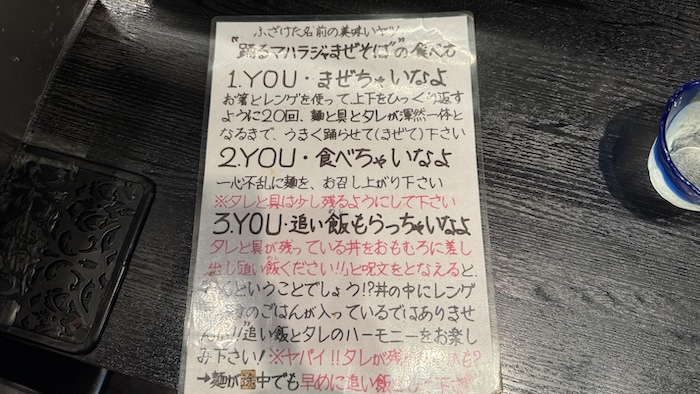 ふざけた名前の美味いヤツ
"踊るマハラジャまぜそば"の食べ方
1.YOU・まぜちゃいなよ
お箸とレンゲを使って上下をひっくり返す
ように20回、麺と具とタレが渾然一体と
なるまで、うまく踊らせて(まぜて)下さい
2.YOU・食べちゃいなよ
一心不乱に麺を、お召し上がり下さい
※タレと具は少し残るようにして下さい
3.YOU・追い飯もらっちゃいなよ
タレと具が残っている丼をおもむろに差し
出し「追い飯ください!!」と呪文をとなえると、
くということでしょう!?丼の中にレンゲ
のごはんが入っているではありませ
ん!!"追い飯とタレのハーモニーをお楽し
み下さい!※ヤバイ!!タレが残
→麺が途中でも早めに追い飯